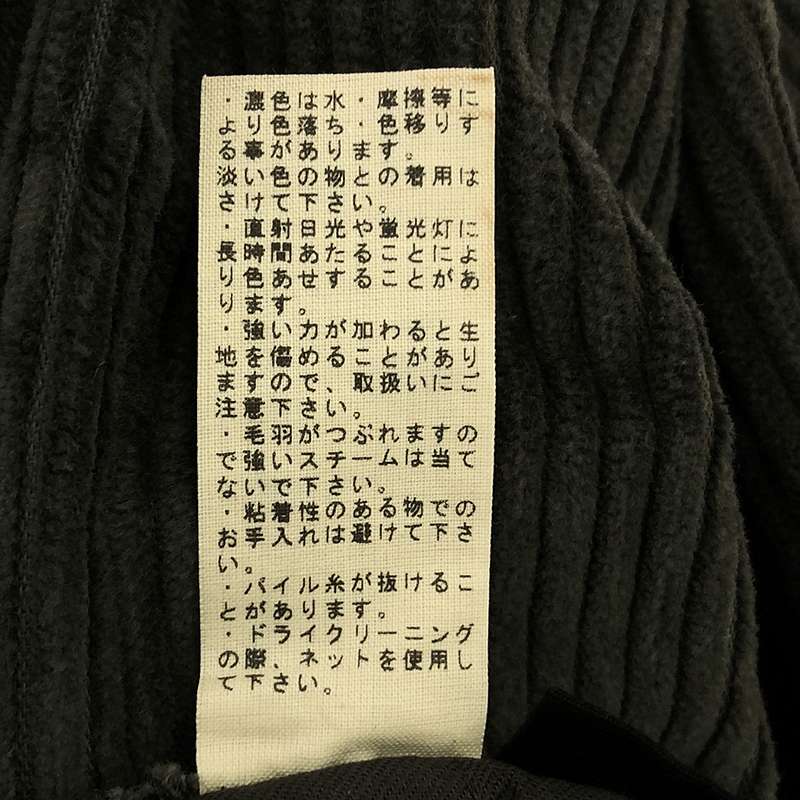 ・濃色は水・摩擦等に
より色落ち・色移りす
る事があります。
淡い色の物との着用は
さけて下さい。
・直射日光や蛍光灯に
長時間あたることによ
り色あせすることがあ
ります。
・強い力が加わると生
地を傷めることがあり
ますので、取扱いにご
注意下さい。
・毛羽がつぶれますの
で強いスチームは当て
ないで下さい。
・粘着性のある物での
お手入れは避けて下さ
い。
・パイル糸が抜けるこ
とがあります。
・ドライクリーニング
の際、ネットを使用し
て下さい。